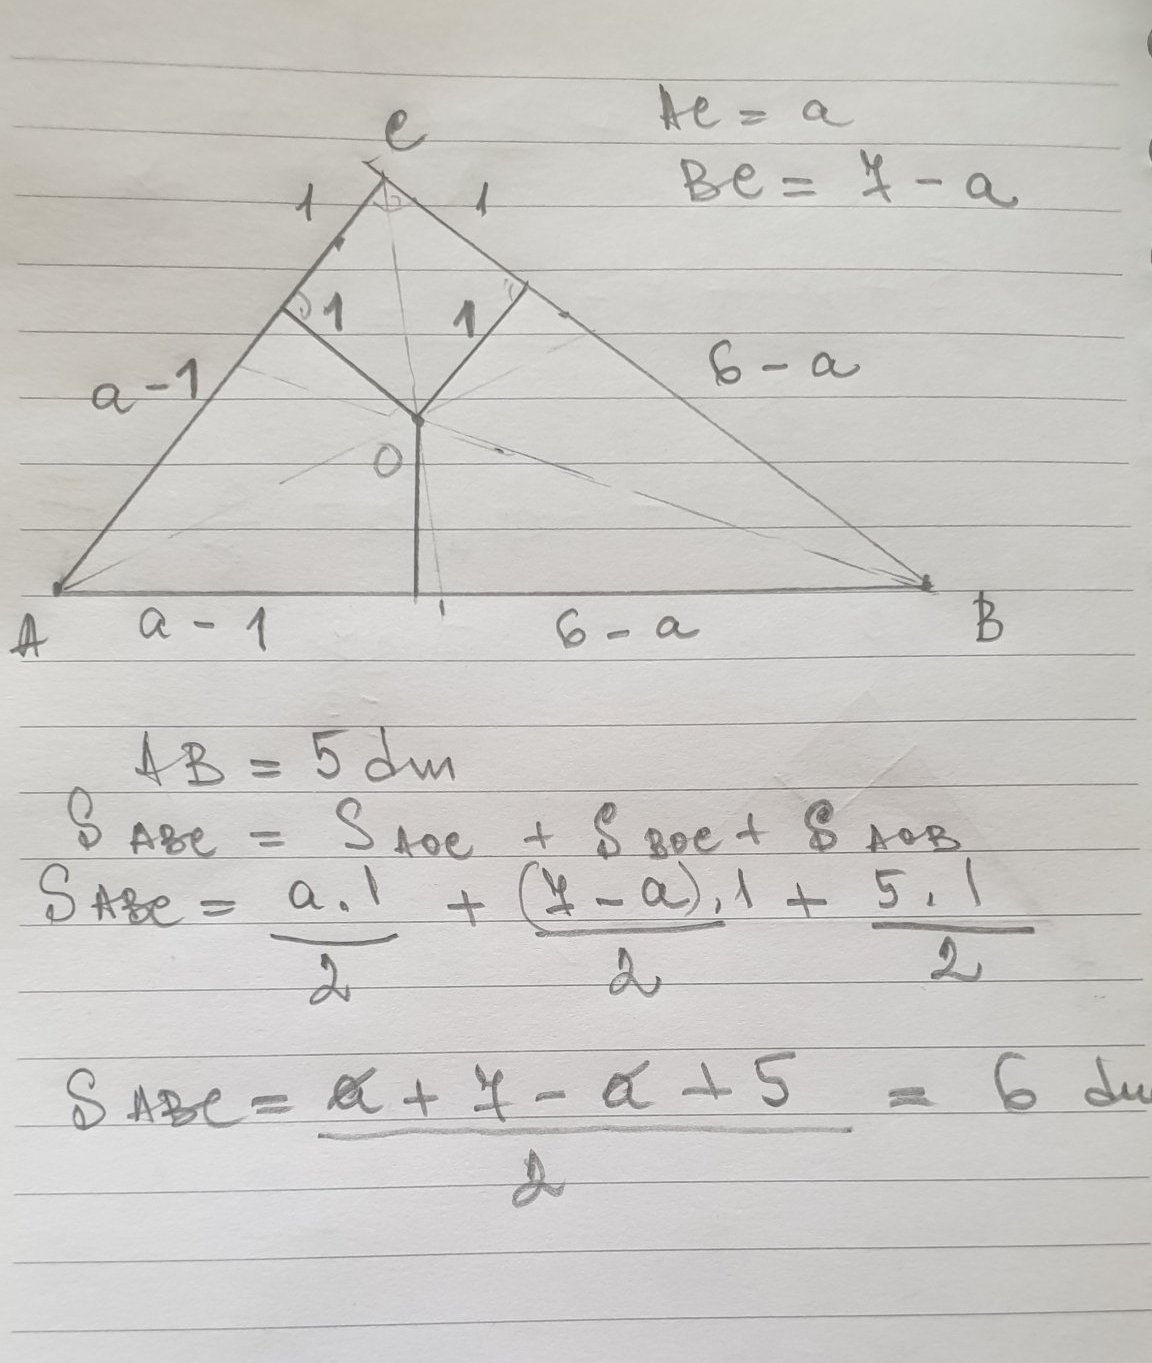 C
AC = a
BC = 7 - a
1 1
1 1
a - 1
6 - a
O
A a - 1 6 - a B
AB = 5 dm
S ABC = S AOC + S BOC + S AOB
S ABC = a . 1 / 2 + (7 - a) . 1 / 2 + 5 . 1 / 2
S ABC = a + 7 - a + 5 / 2 = 6